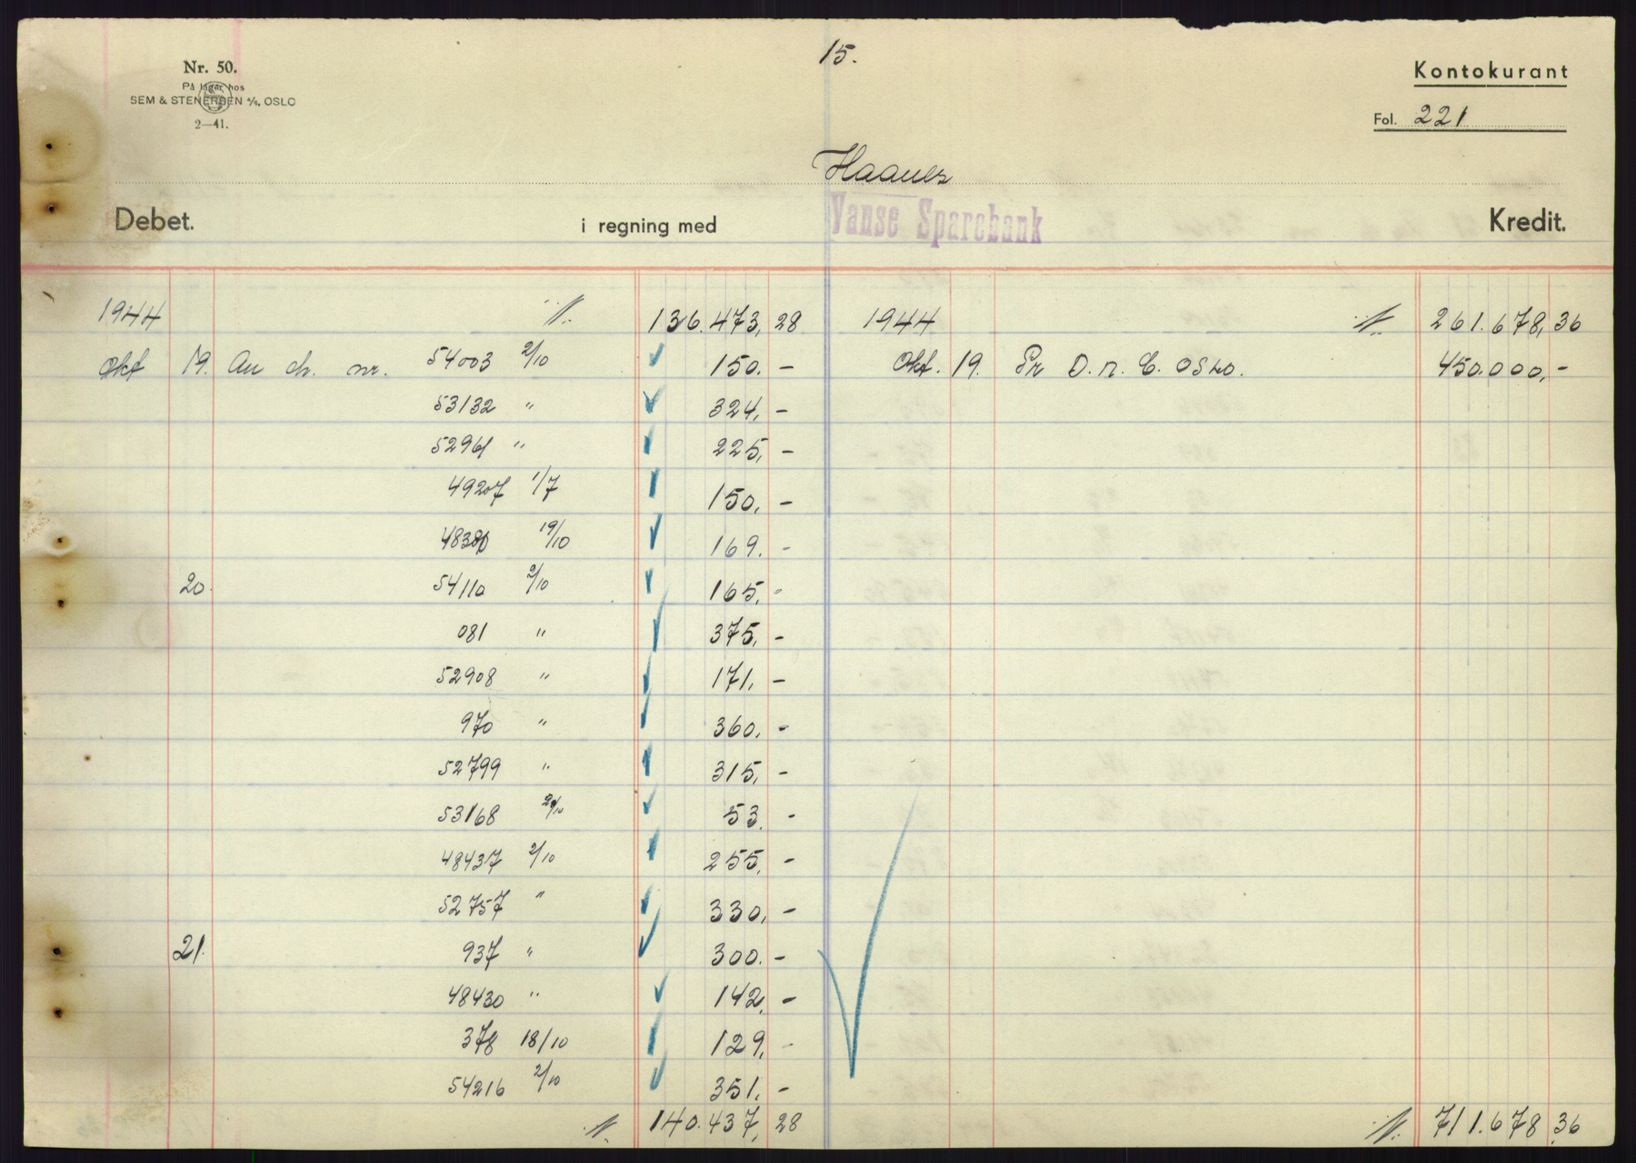 15.
Nr. 50.
På lager hos
SEM & STENERSEN A/S, OSLO
2—41.
Kontokurant
Fol. 221
Haanes
Debet. i regning med Vanse Sparebank Kredit.
1944 136.473,28 1944 261.678,36
Okt 19. An ch. nr. 54003 2/10 150.- Okt. 19. Pr D.n.C. Oslo. 450.000,-
53132 " 324,-
52961 " 225,-
49207 1/7 150,-
19/10 169.-
20. 54110 2/10 165,-
081 " 375,-
52908 " 171,-
970 " 360,-
52799 " 315,-
53168 53.-
48437 2/10 255,-
52757 " 330,-
21. 937 " 300.-
48430 " 142,-
378 18/10 129,-
54216 2/10 351.-
140.437,28 711.678,36